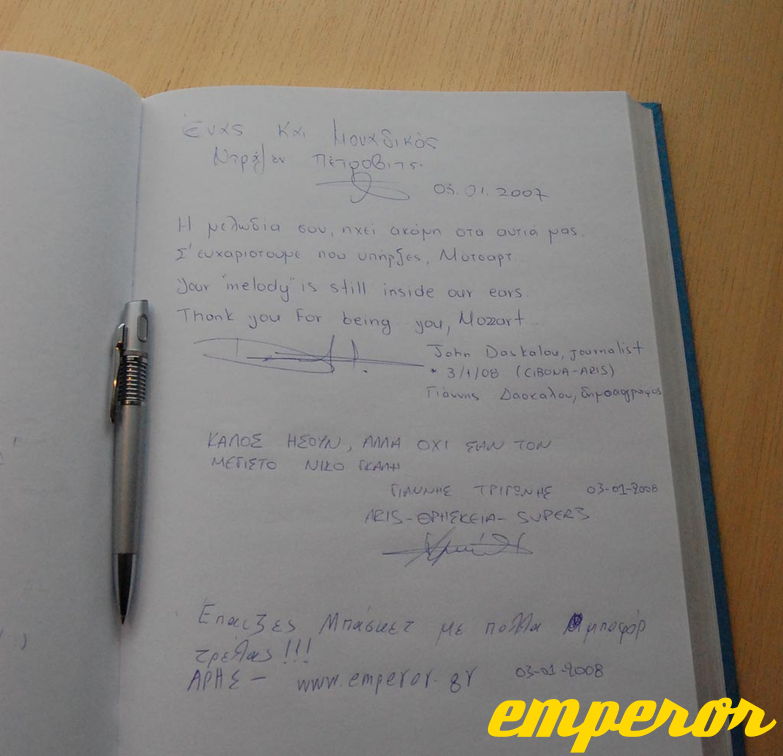 Ένας και μοναδικός
Ντράζεν Πέτροβιτς.
03.01.2007
Η μελωδία σου, ηχεί ακόμη στα αυτιά μας.
Σ' ευχαριστούμε που υπήρξες, Μότσαρτ.
Your "melody" is still inside our ears.
Thank you for being you, Mozart.
John Daskalou, journalist
3/1/08 (CIBONA-ARIS)
Γιάννης Δασκάλου, δημοσιογράφος
ΚΑΛΟΣ ΗΣΟΥΝ, ΑΛΛΑ ΟΧΙ ΣΑΝ ΤΟΝ
ΜΕΓΙΣΤΟ ΝΙΚΟ ΓΚΑΛΗ
ΓΙΑΝΝΗΣ ΤΡΙΓΩΝΗΣ 03-01-2008
ARIS-ΘΡΗΣΚΕΙΑ-SUPER3
Επαιξες Μπάσκετ με πολλα μποφόρ
τρέλας!!!
ΑΡΗΣ - www.emperor.gr 03-01-2008
emperor